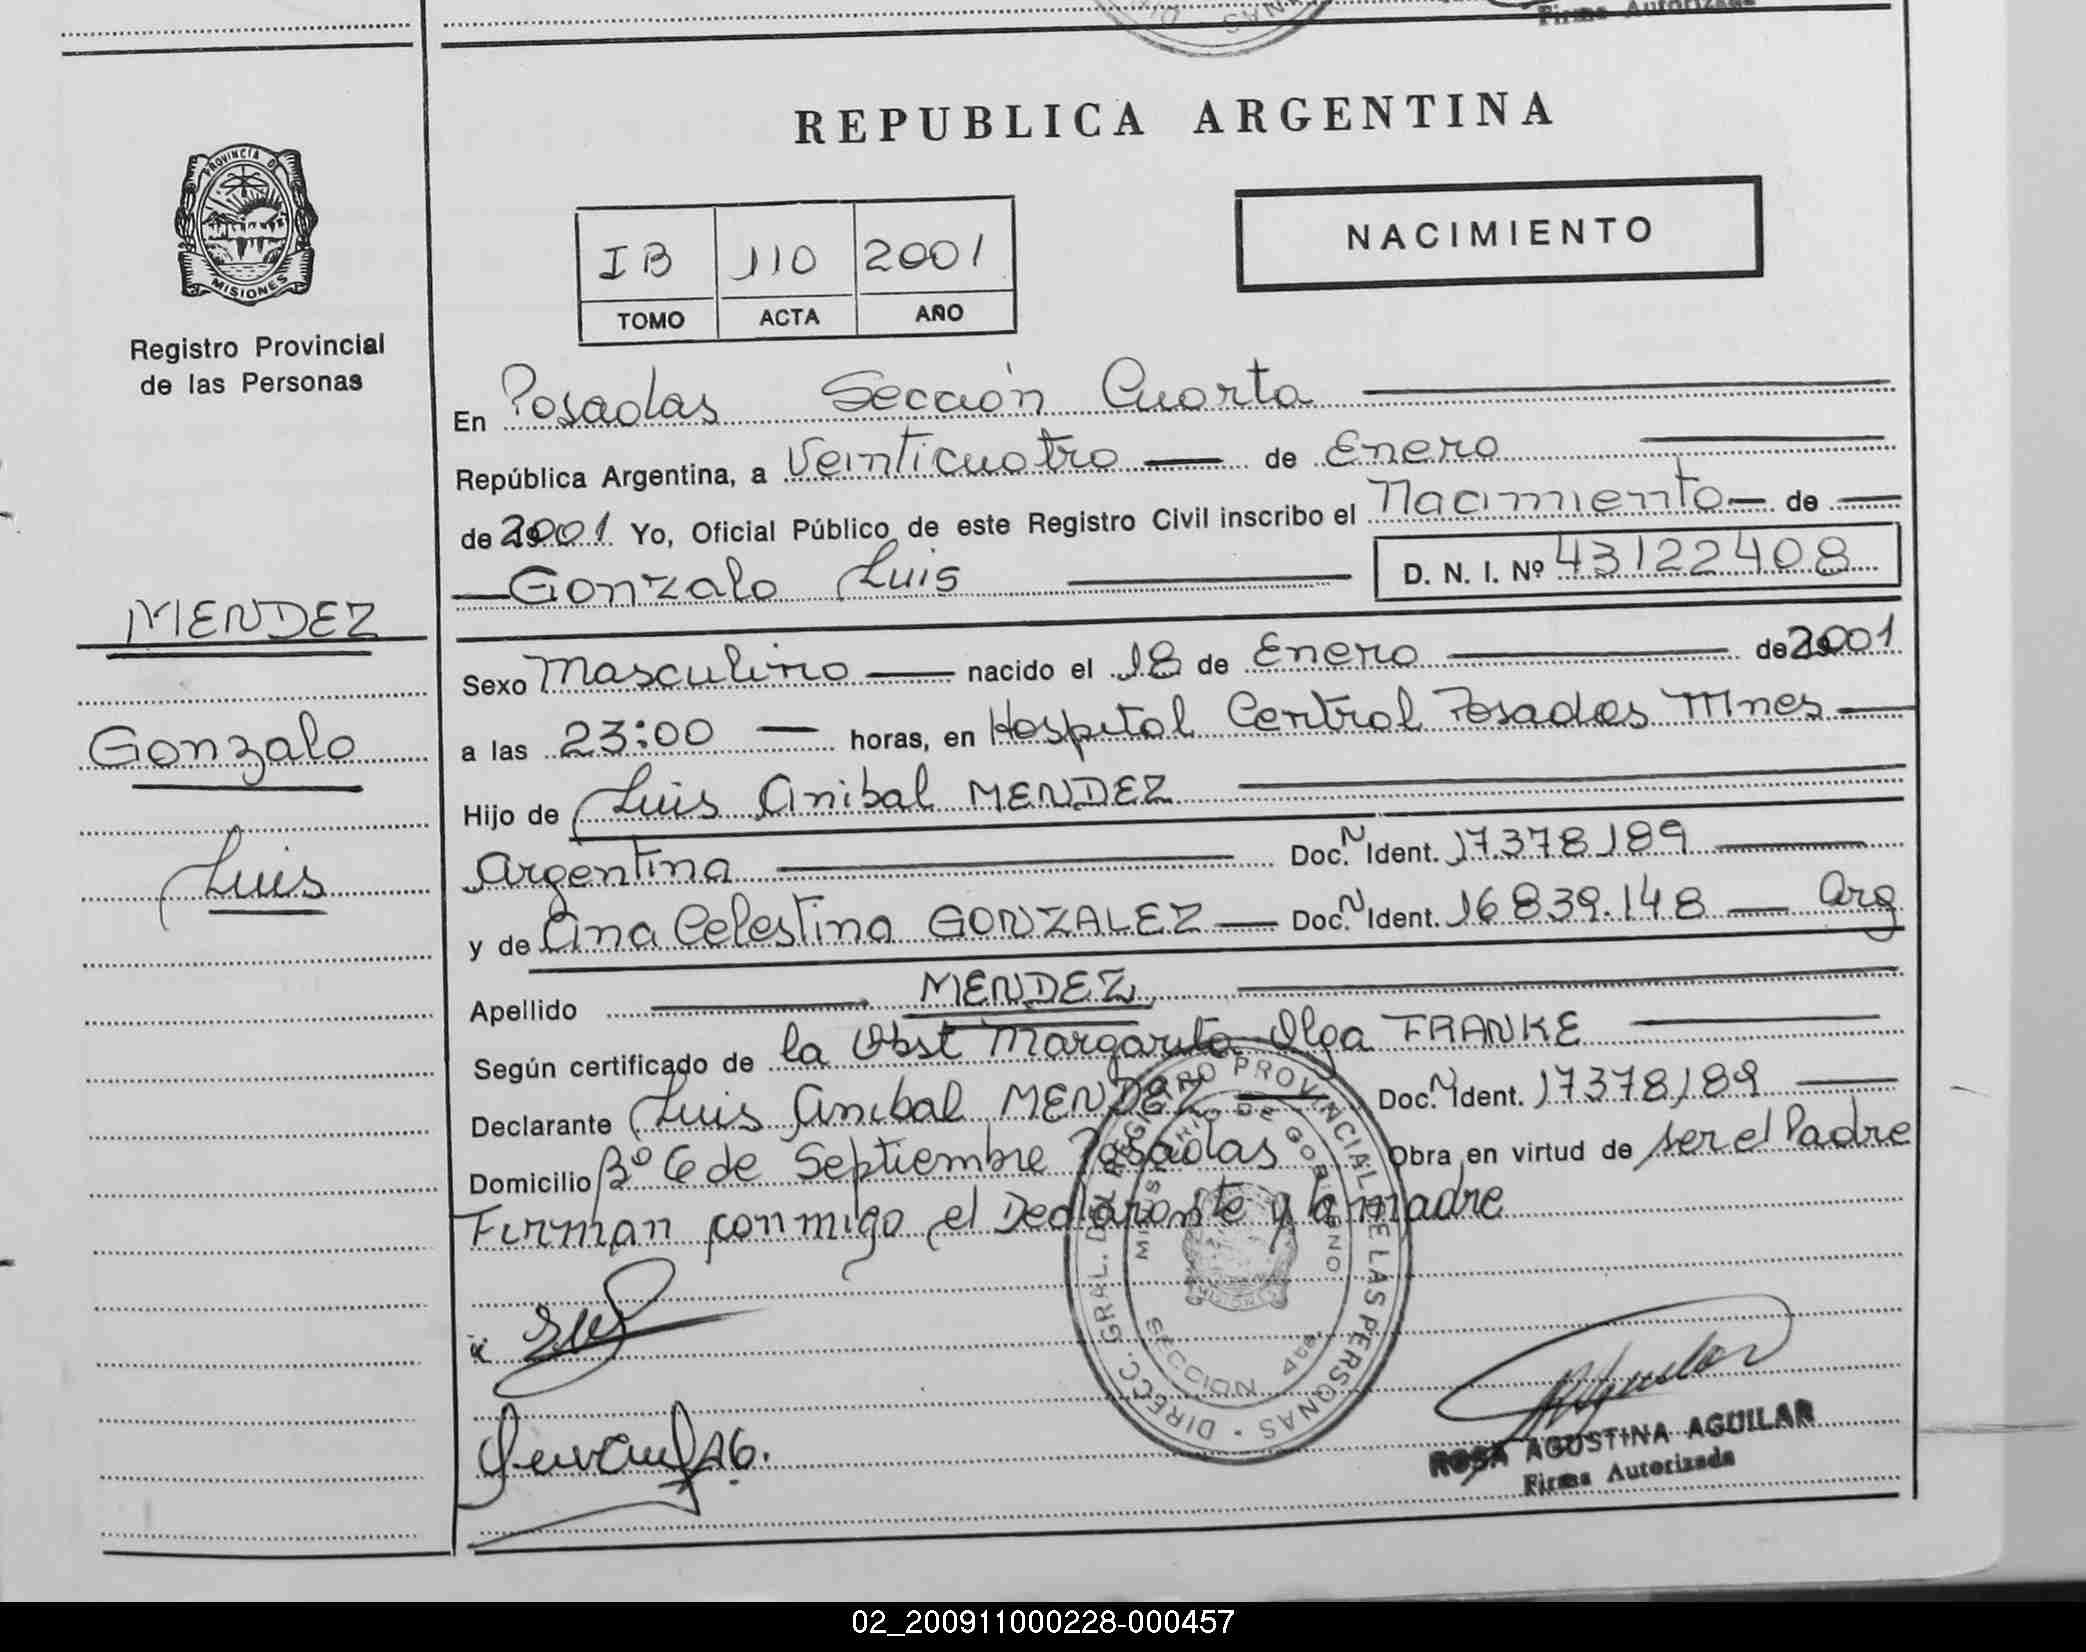 Firma Autorizada
REPUBLICA ARGENTINA
PROVINCIA D
MISIONES
IB 110 2001
TOMO ACTA AÑO
NACIMIENTO
Registro Provincial
de las Personas
En Posadas Sección Cuarta
República Argentina, a Veinticuatro de Enero
de 2001 Yo, Oficial Público de este Registro Civil inscribo el Nacimiento de
Gonzalo Luis D. N. I. Nº 43122408
MENDEZ
Gonzalo
Luis
Sexo Masculino nacido el 18 de Enero de 2001
a las 23:00 horas, en Hospital Central Posadas Mnes
Hijo de Luis Anibal MENDEZ
Argentina Doc. N Ident. 17.378.189
y de Ana Celestina GONZALEZ Doc. N Ident. 16839.148 Arg
Apellido MENDEZ
Según certificado de la Obst Margarita Olga FRANKE
Declarante Luis Anibal MENDEZ Doc. N Ident. 17378189
Domicilio Bº 6 de Septiembre Posadas Obra en virtud de ser el Padre
Firman conmigo el Declarante y la madre
DIRECC. GRAL. DEL REGISTRO PROVINCIAL DE LAS PERSONAS
MINISTERIO DE GOBIERNO
SECCION 4ta
ROSA AGUSTINA AGUILAR
Firma Autorizada
02_200911000228-000457